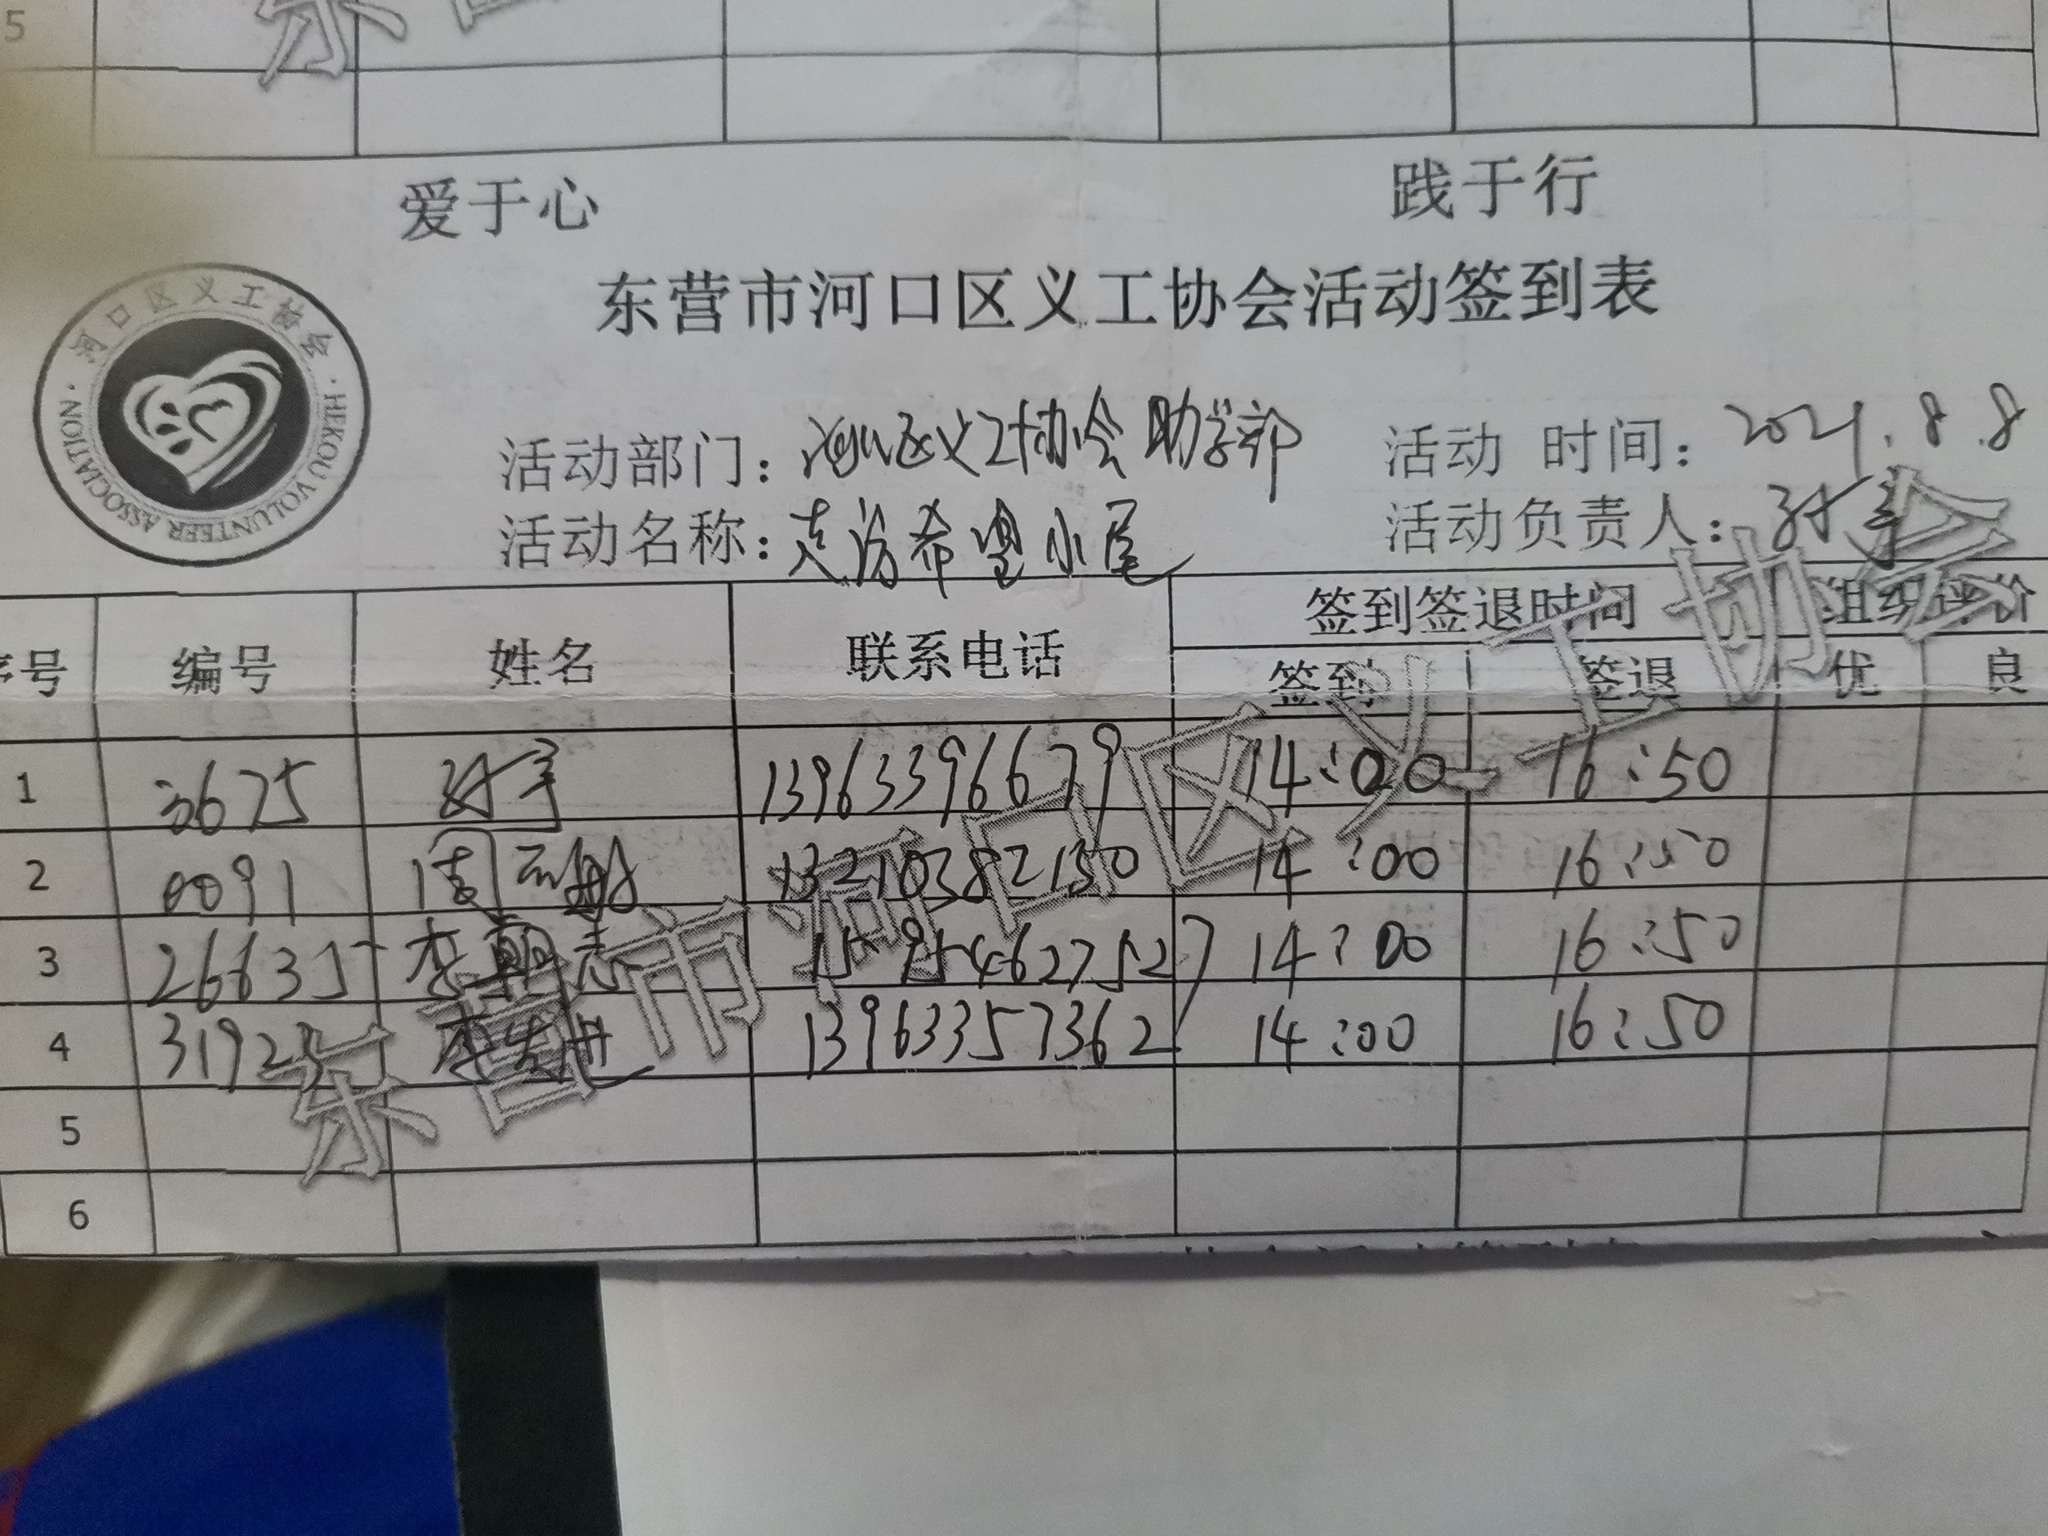 5
爱于心 践于行
东营市河口区义工协会活动签到表
河口区义工协会 HEKOU VOLUNTEER ASSOCIATION
活动部门：河口区义工协会助学部 活动 时间：2021.8.8
活动名称：走访希望小屋 活动负责人：孙宇
序号 编号 姓名 联系电话 签到签退时间 组织评价
签到 签退 优 良
1 3675 孙宇 13963396679 14:00 16:50
2 0091 周 13210382150 14:00 16:50
3 26635 李朝志 15954627527 14:00 16:50
4 3192 李 13963357362 14:00 16:50
5
6
东营市河口区义工协会